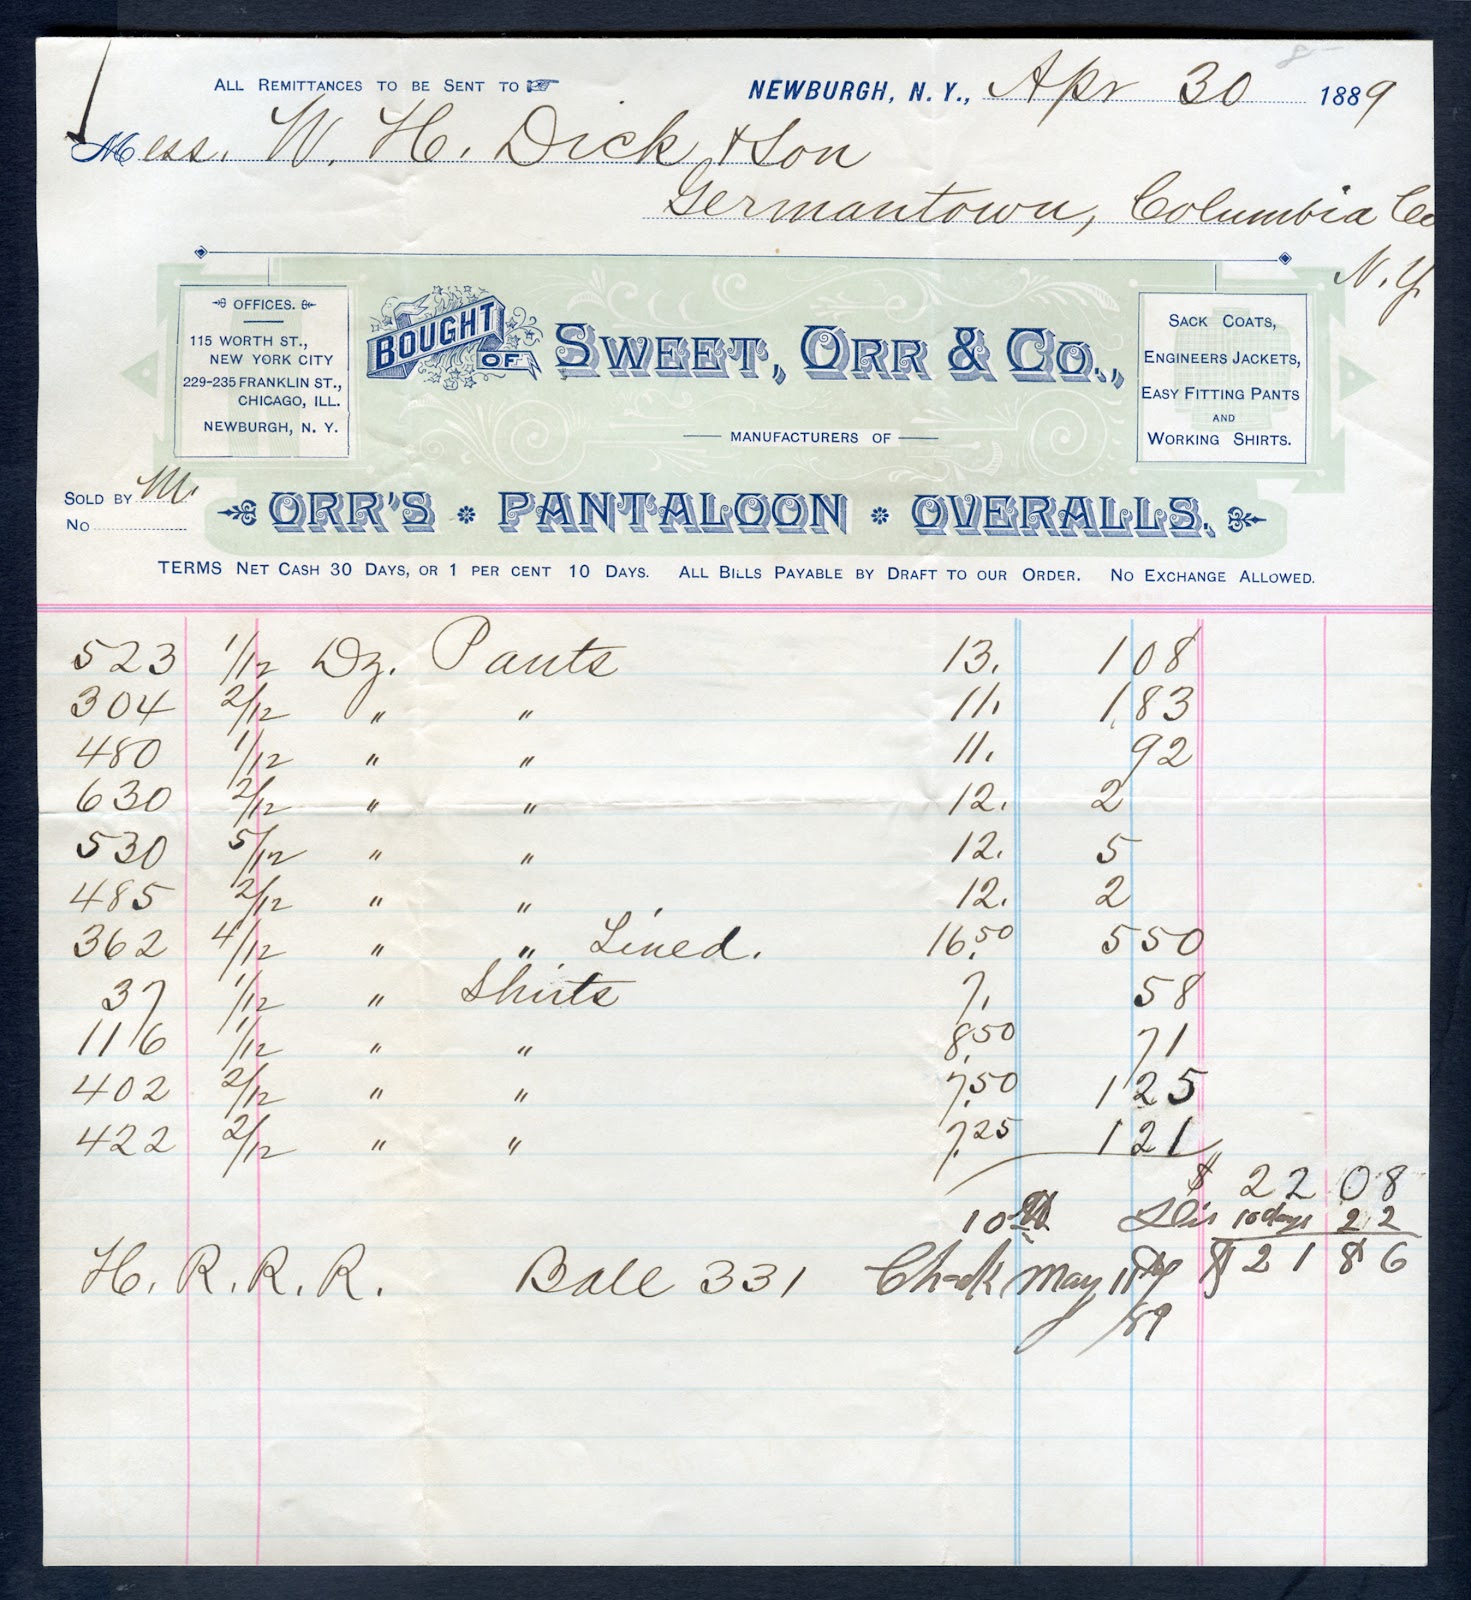 ALL REMITTANCES TO BE SENT TO
NEWBURGH, N. Y., Apr 30 1889
Mess. W. H. Dick & Son
Germantown, Columbia Co
N. Y.
OFFICES.
115 WORTH ST.,
NEW YORK CITY
229-235 FRANKLIN ST.,
CHICAGO, ILL.
NEWBURGH, N. Y.
BOUGHT OF SWEET, ORR & CO.,
MANUFACTURERS OF
SACK COATS,
ENGINEERS JACKETS,
EASY FITTING PANTS
AND
WORKING SHIRTS.
SOLD BY M.
NO
ORR'S * PANTALOON * OVERALLS.
TERMS NET CASH 30 DAYS, OR 1 PER CENT 10 DAYS. ALL BILLS PAYABLE BY DRAFT TO OUR ORDER. NO EXCHANGE ALLOWED.
523 1/12 Dz. Pants 13. 1 08
304 2/12 " " 11. 1 83
480 1/12 " " 11. 92
630 2/12 " " 12. 2
530 5/12 " " 12. 5
485 2/12 " " 12. 2
362 4/12 " " Lined. 16.50 5 50
37 1/12 " Shirts 7. 58
116 1/12 " " 8.50 71
402 2/12 " " 7.50 1 25
422 2/12 " " 7.25 1 21
$ 22 08
10 Dis 10 days 22
H. R. R. R. Bale 331 Check May 11th $ 21 86
/89